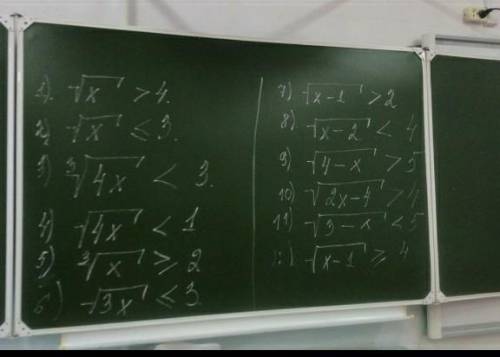 1) √x > 4.
2) √x ≤ 3.
3) ∛4x < 3.
4) √4x < 1
5) ∛x ≥ 2
6) √3x ≤ 3.
7) √x-1 > 2
8) √x-2 < 4
9) √4-x > 5
10) √2x-4 > 4
11) √3-x < 5
12) √x-1 ≥ 4